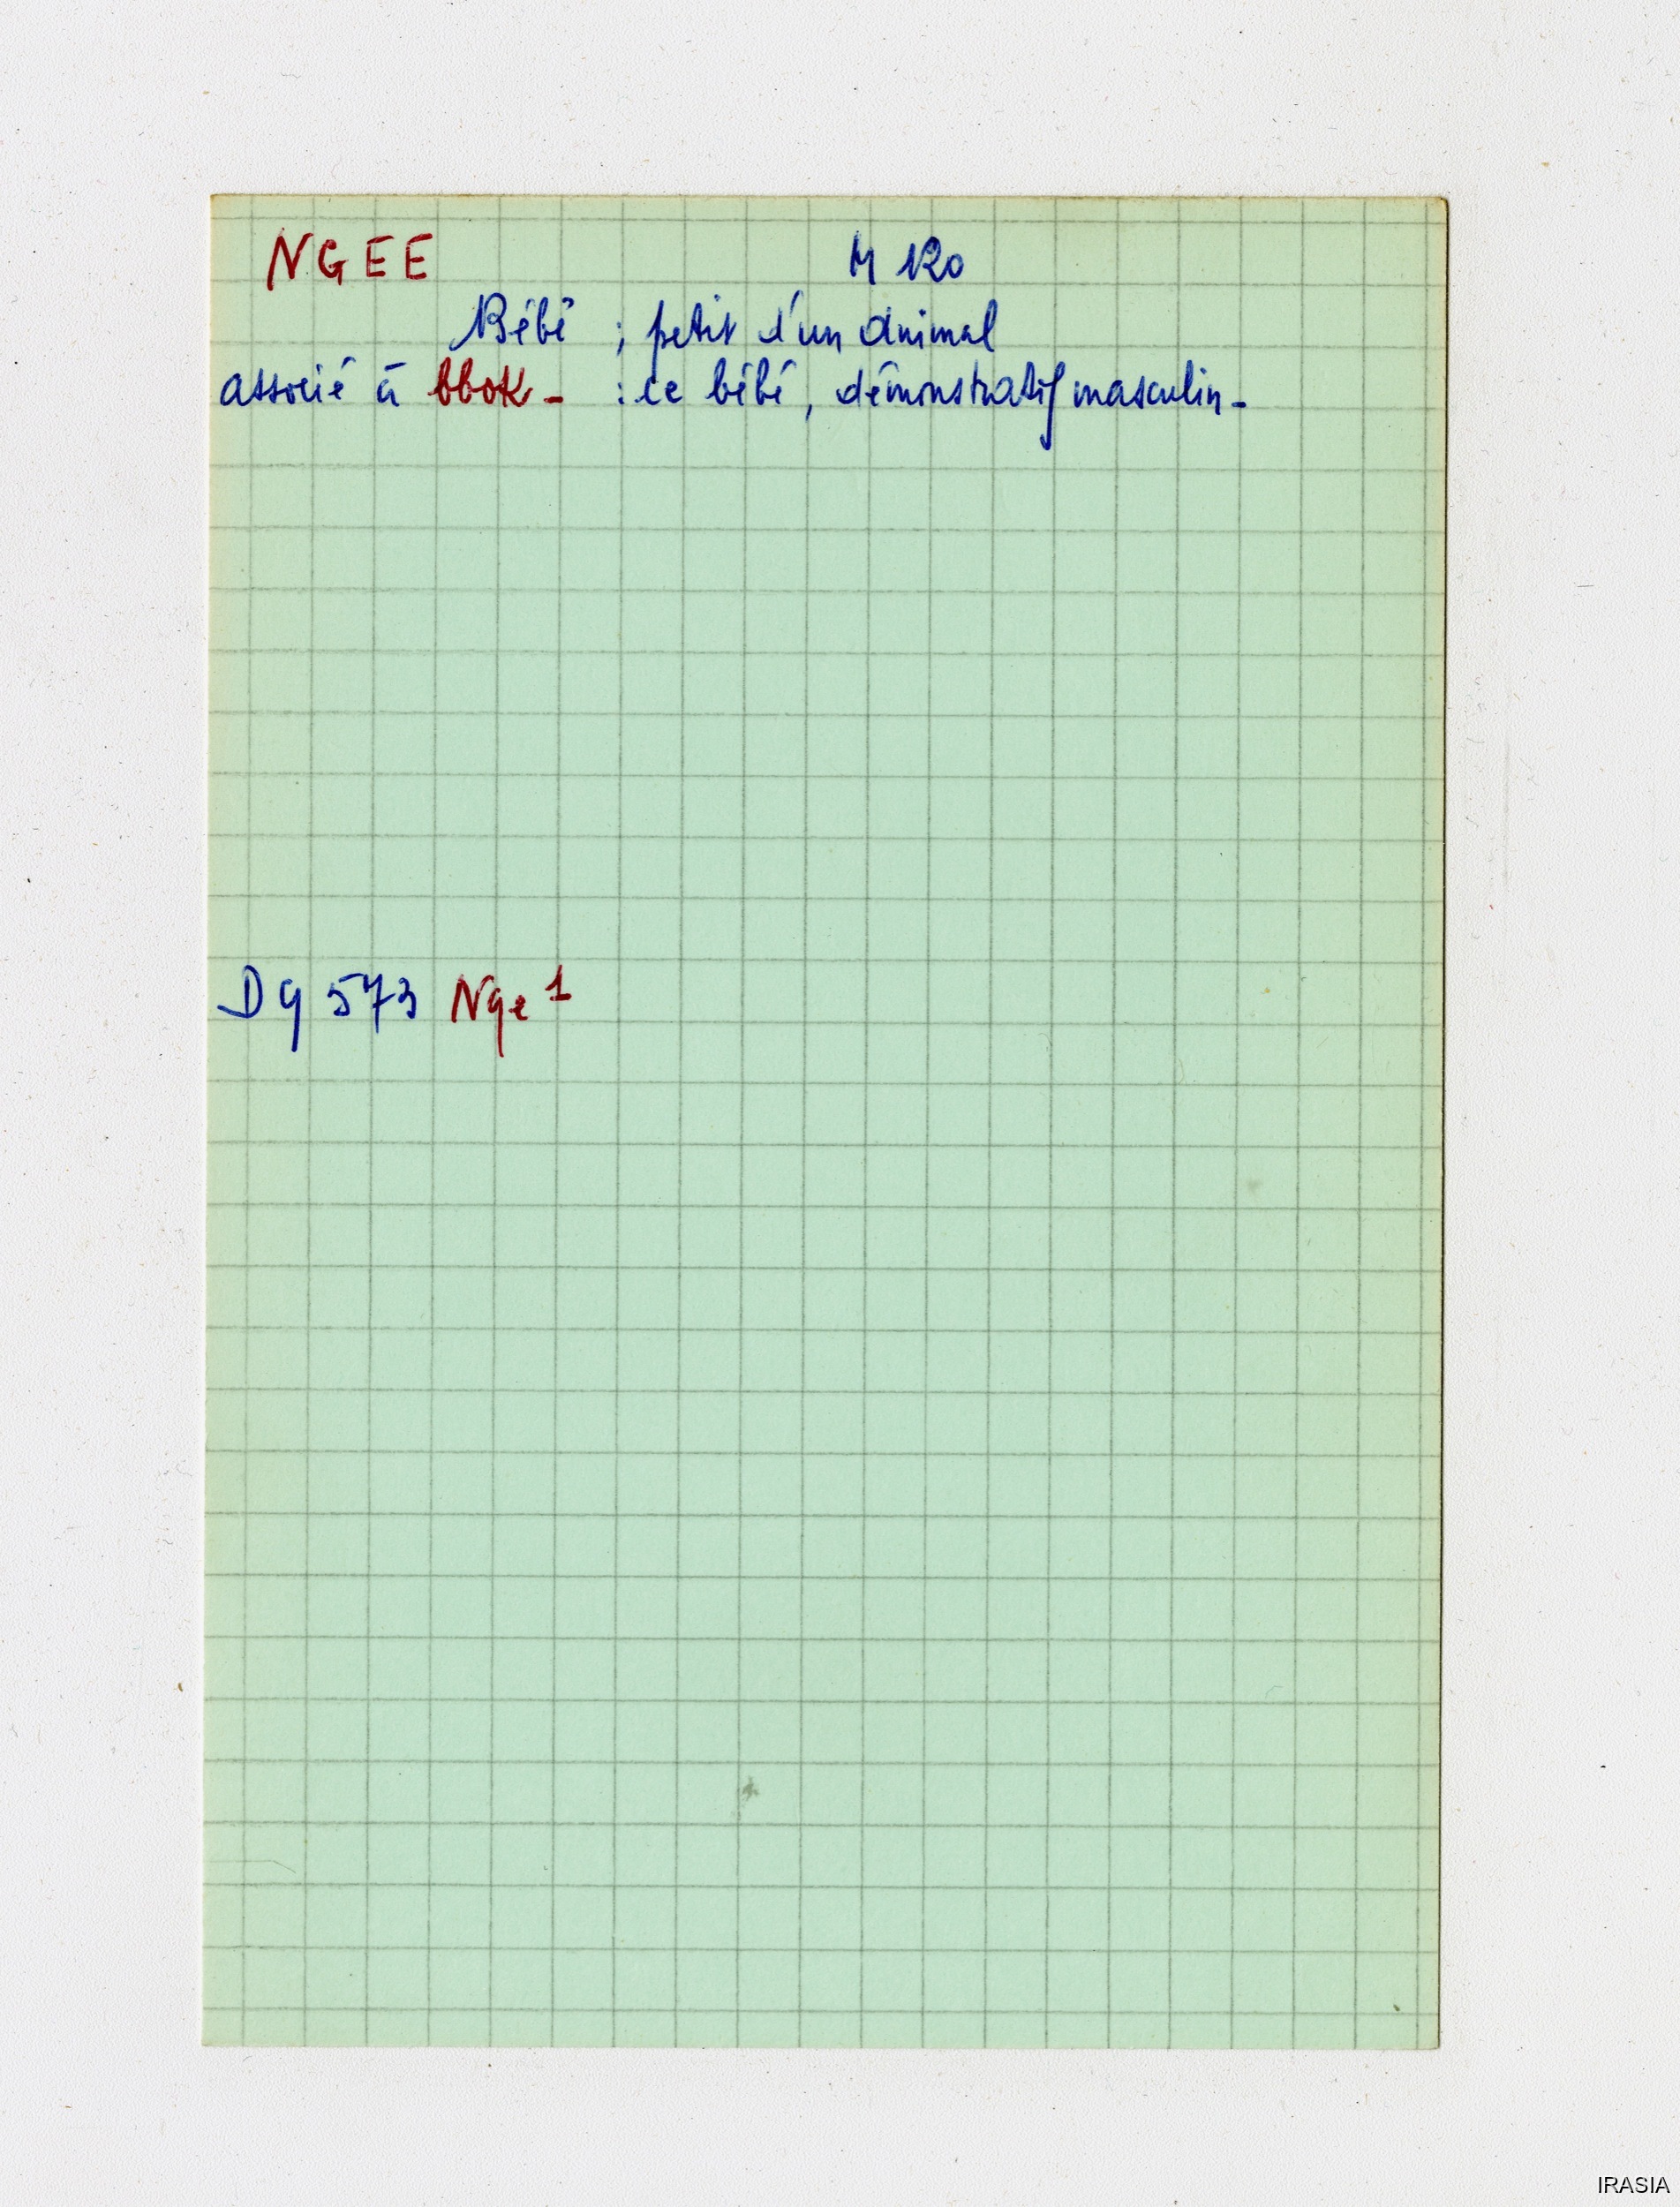 NGEE M 120
Bébé ; petit d'un animal
associé à bbok - : ce bébé, démonstratif masculin -
D9 573 Nge 1
IRASIA